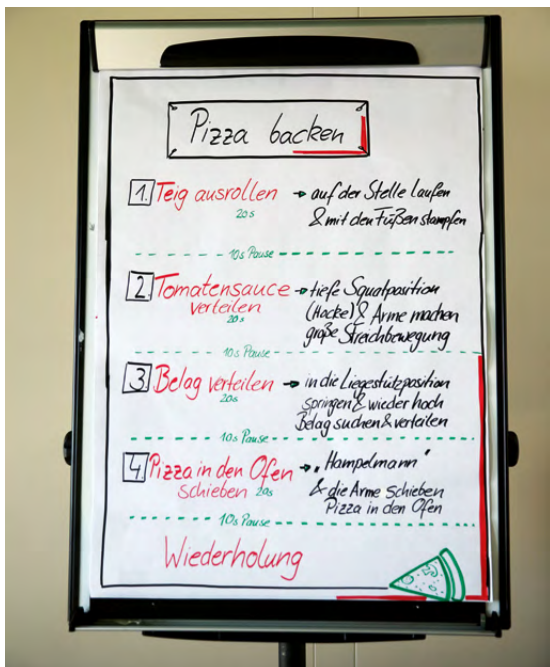 Pizza backen
1. Teig ausrollen → auf der Stelle laufen
20s & mit den Füßen stampfen
10s Pause
2. Tomatensauce → tiefe Squatposition
verteilen (Hocke) & Arme machen
20s große Streichbewegung
10s Pause
3. Belag verteilen → in die Liegestützposition
20s springen & wieder hoch
Belag suchen & verteilen
10s Pause
4. Pizza in den Ofen → "Hampelmann"
schieben 20s & die Arme schieben
Pizza in den Ofen
10s Pause
Wiederholung